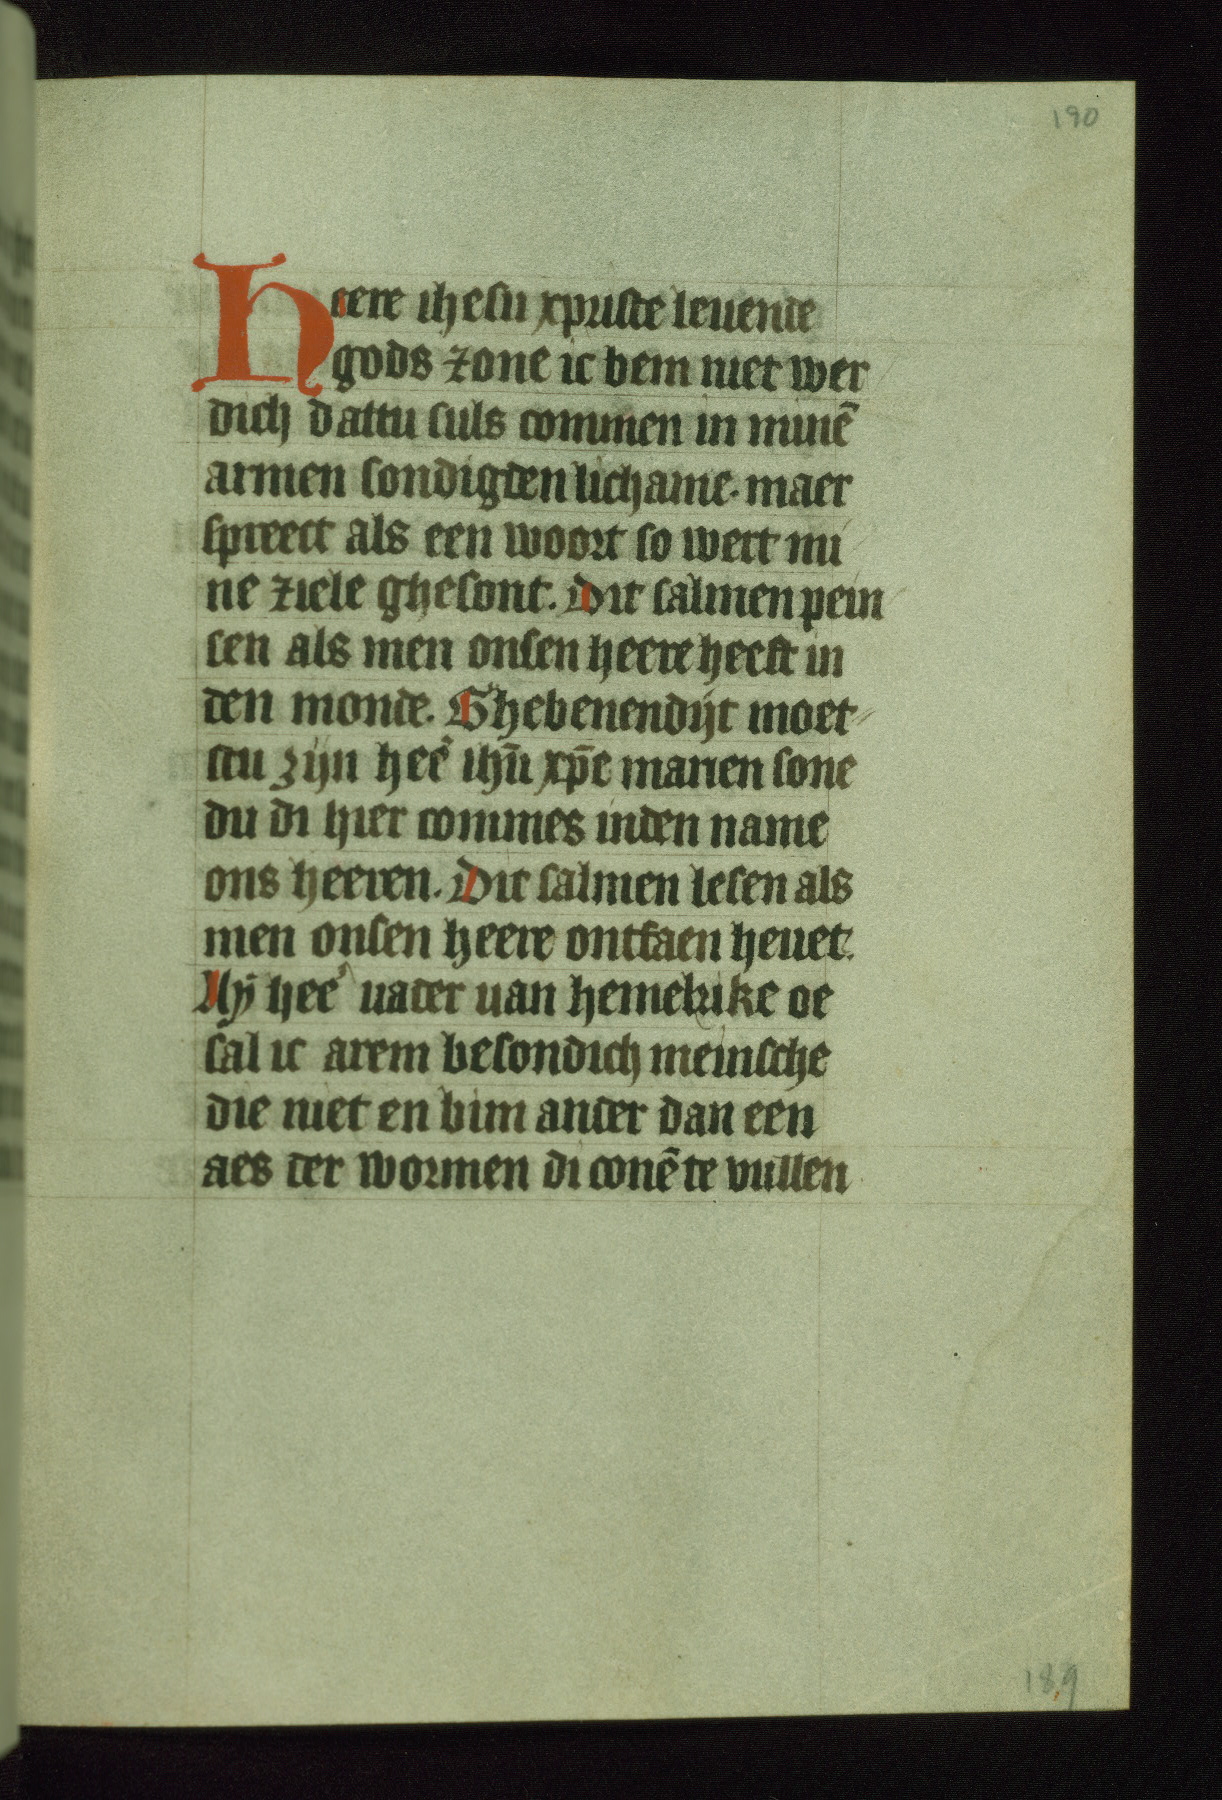 190
Heere ihesu xpriste leuende
gods zone ic bem niet wer
dich dattu suls commen in minē
armen sondigden lichame. maer
spreect als een woort so wert mi
ne ziele ghesont. Dit salmen pein
sen als men onsen heere heeft in
den monde. Ghebenendijt moet
stu zijn heē ihū xpē marien sone
du di hier commes inden name
ons heeren. Dit salmen lesen als
men onsen heere ontfaen heuet.
Ay heē uader uan hemelrike oe
sal ic arem besondich meinsche
die niet en bim ander dan een
aes der wormen di conē te vullen
189